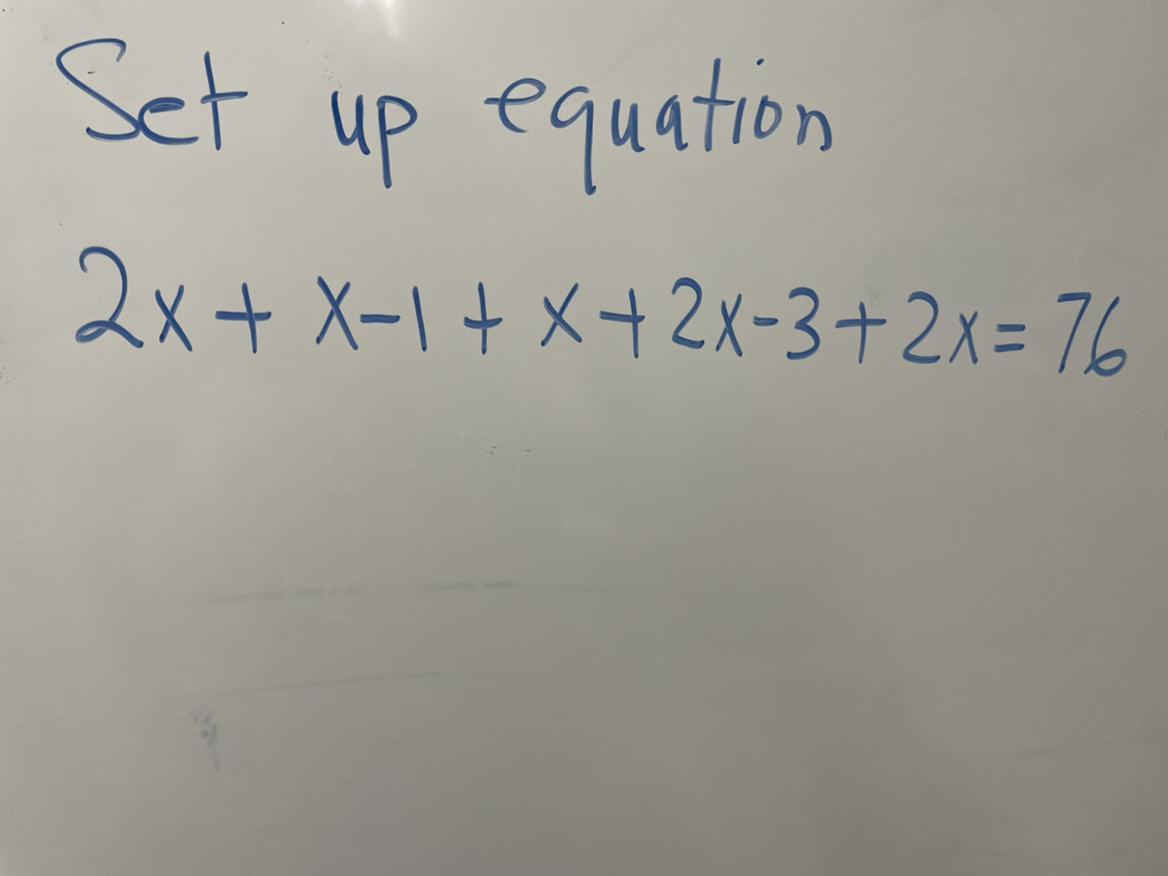 Set up equation
2x + x-1 + x + 2x-3 + 2x = 76